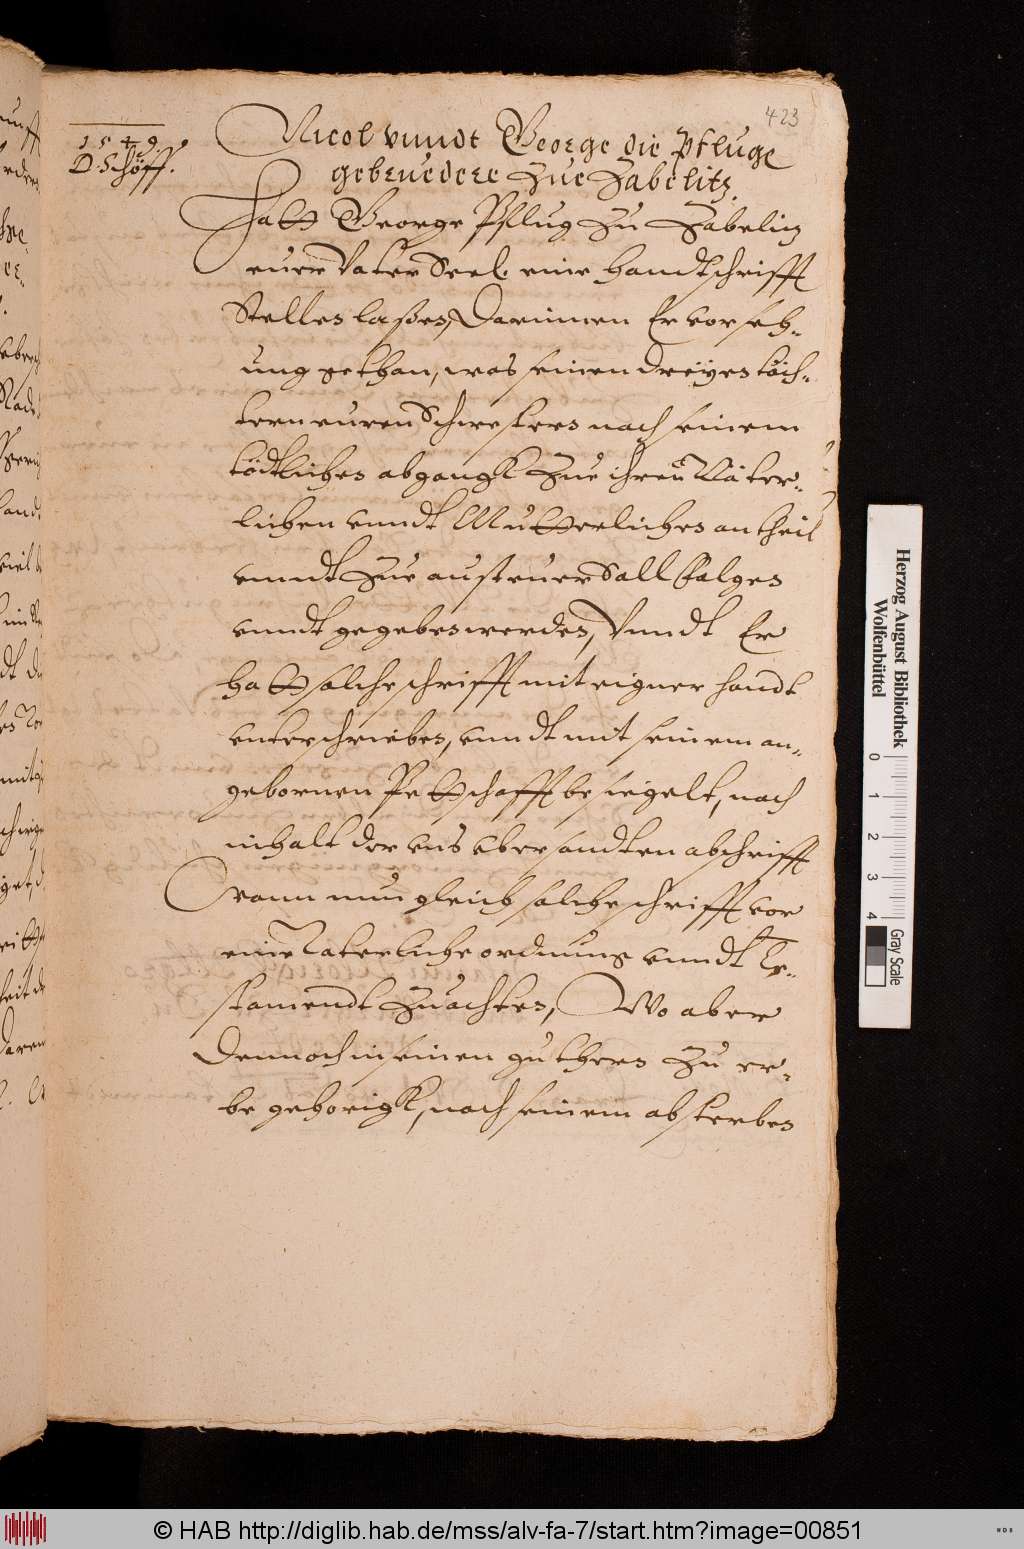 423
1549.
D. Schöff.
Nicol vnndt George die Pfluge
gebruedere zue Zabelitz.
Hatt George Pflug zu Zabelitz
euer Vater Seel. eine handtschrifft
Stellen laßen, Darinnen Er vorseh-
ung gethan, was seinen dreyen töch-
tern euren Schwestern nach seinem
tödtlichen abgangk zue ihren Väter-
lichen vnndt Mutterlichen antheil
vnndt zue austeuer Soll folgen
vnndt gegeben werden, Vnndt Er
hatt solche schrifft mit eigner handt
vnterschrieben, vnndt mit seinem an-
gebornen Pettschafft besiegelt, nach
inhalt der vns vbersandten abschrifft
Wann nun gleich solche schrifft vor
eine Vaterliche ordnung vnndt Te-
stamendt zuachten, Wo aber
dennoch in seinen guthern zu er-
be gehorigk, nach seinem absterben
Herzog August Bibliothek
Wolfenbüttel
0 1 2 3 4
Gray Scale
© HAB http://diglib.hab.de/mss/alv-fa-7/start.htm?image=00851